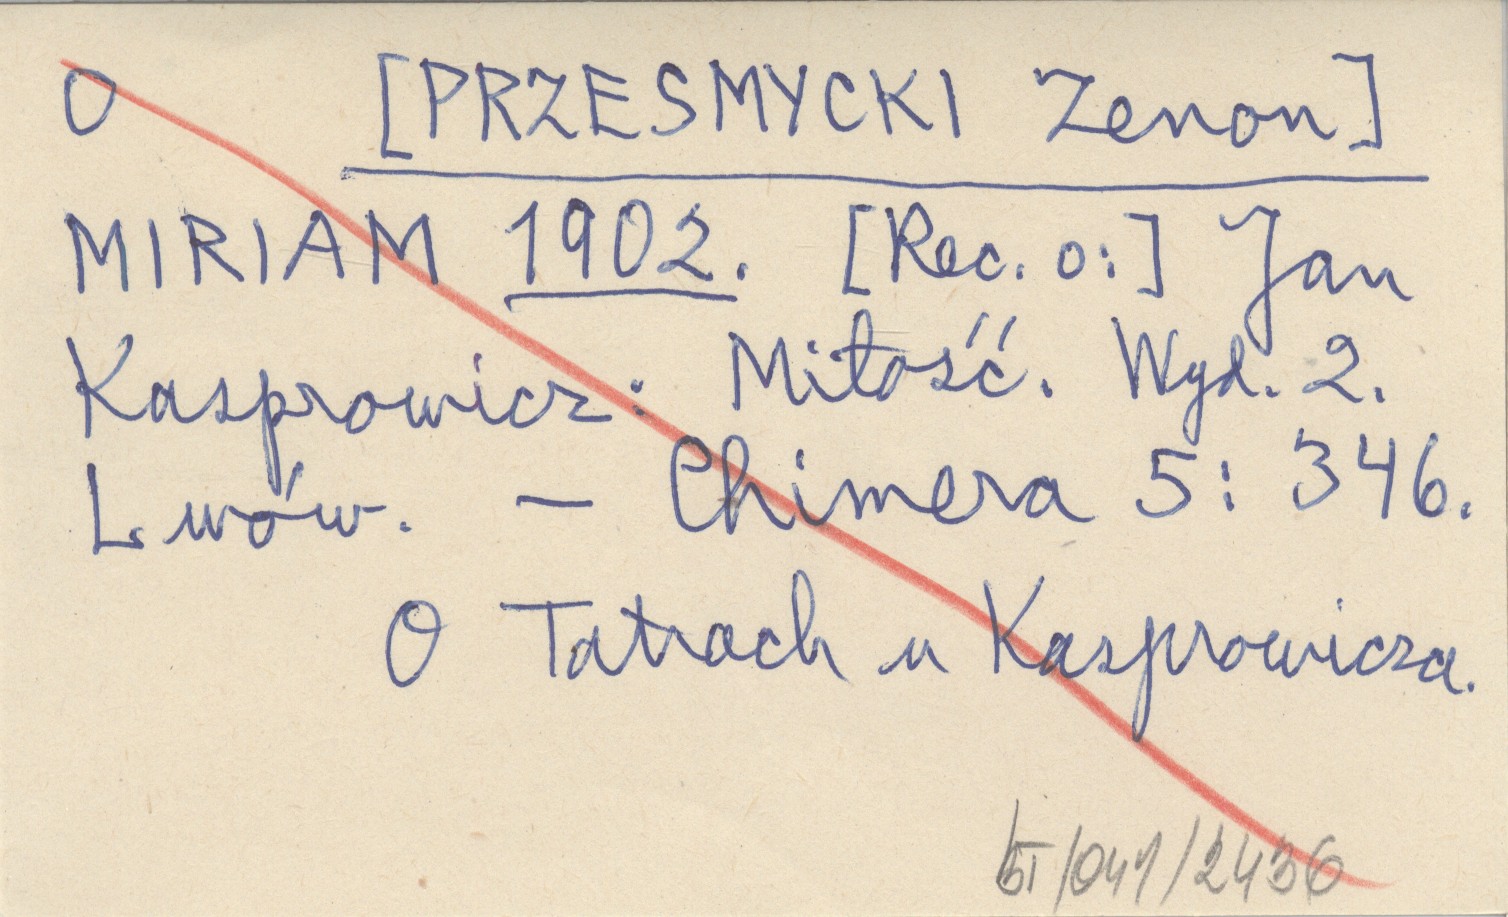 O [PRZESMYCKI Zenon]
MIRIAM 1902. [Rec. o:] Jan
Kasprowicz: Miłość. Wyd. 2.
Lwów. – Chimera 5: 346.
O Tatrach u Kasprowicza.
/041/2436